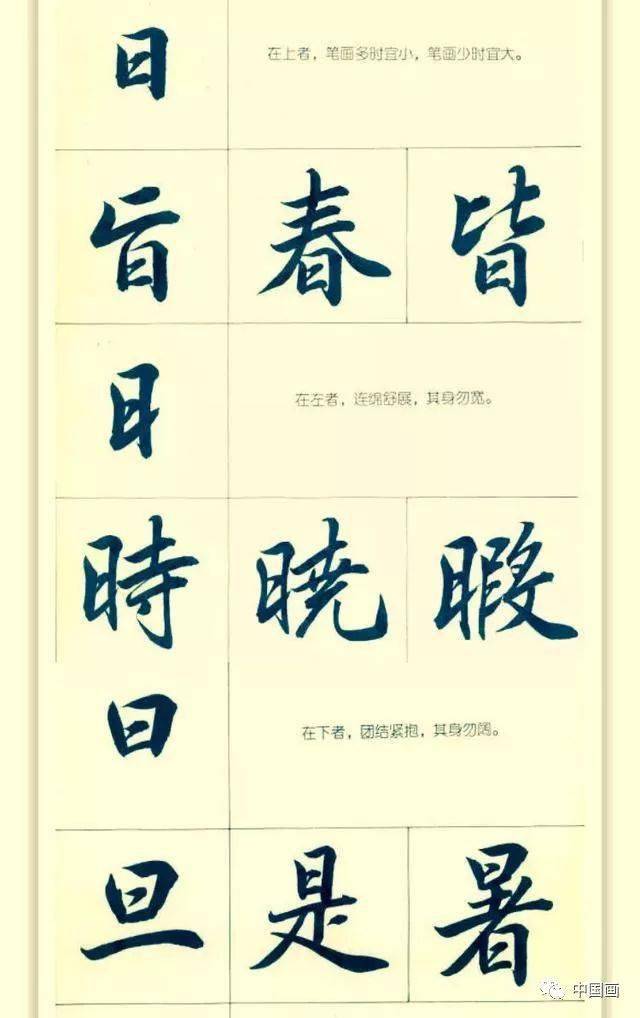 日
在上者，笔画多时宜小，笔画少时宜大。
旨 春 皆
日
在左者，连绵舒展，其身勿宽。
時 暁 暇
日
在下者，团结紧抱，其身勿阔。
旦 是 暑
中国画